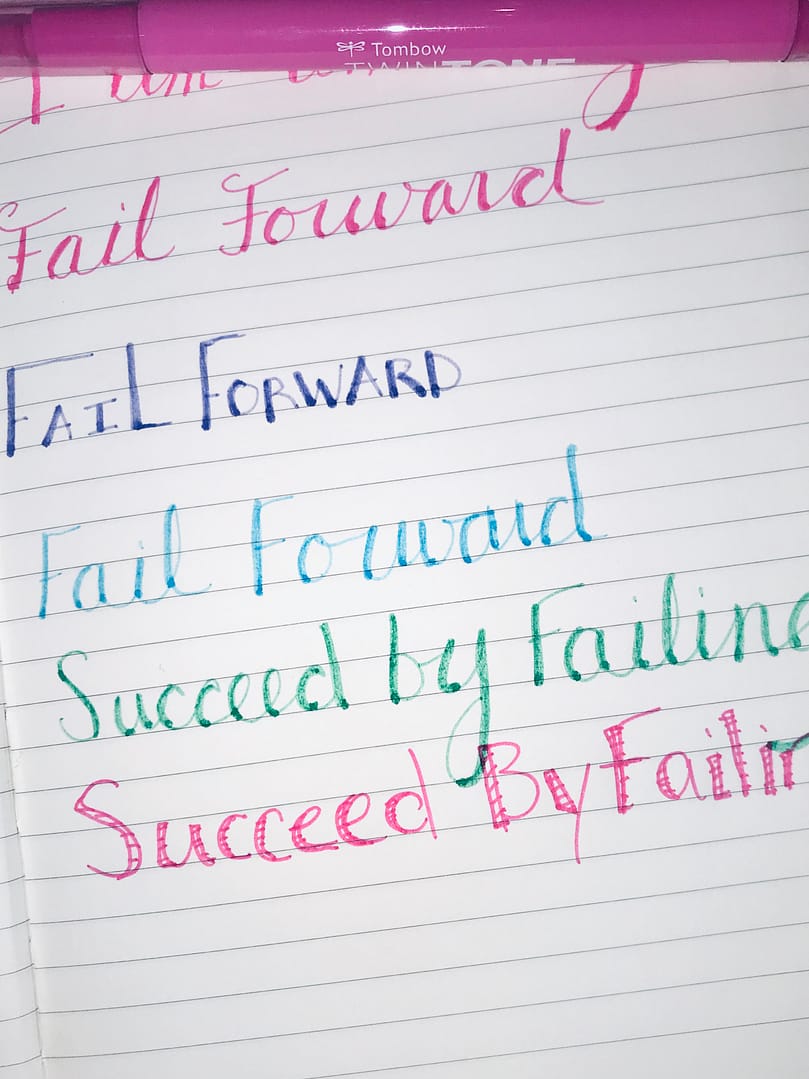 Tombow
TWINTONE
I am
Fail Forward
FAIL FORWARD
Fail Forward
Succeed by Failing
Succeed By Failin